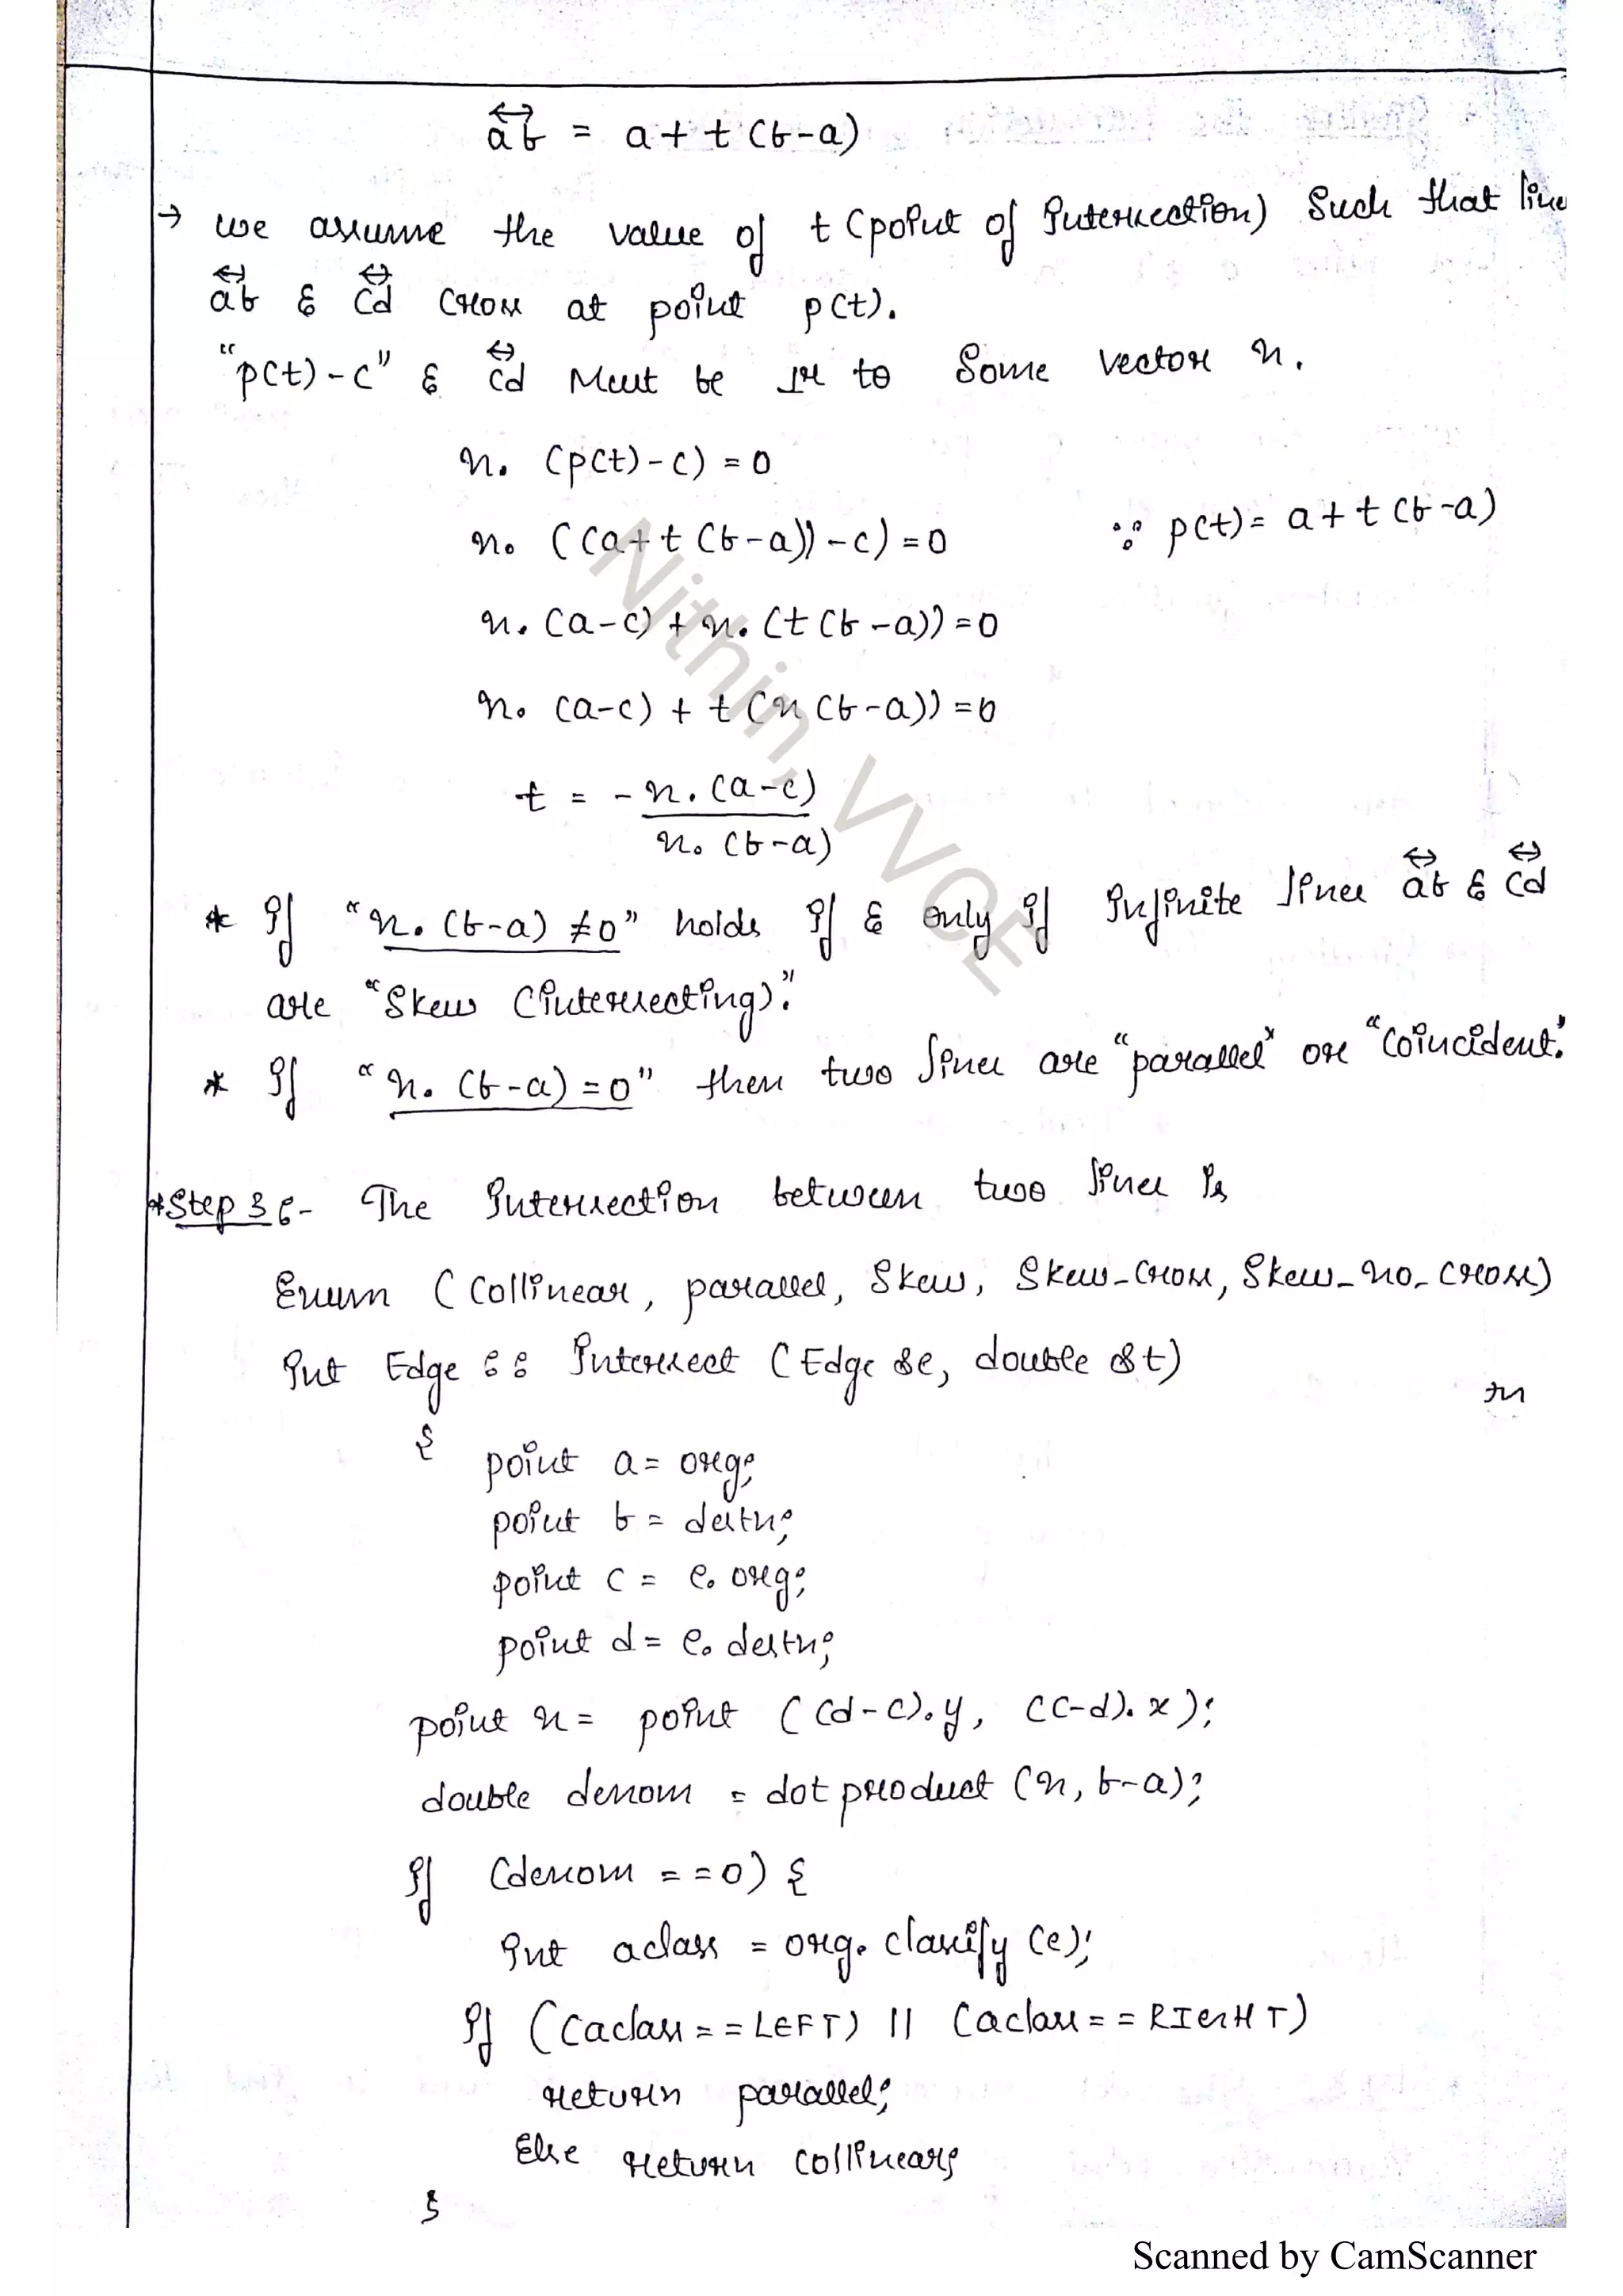 ab = a + t (b-a)
→ we assume the value of t (point of intersection) such that line
ab & cd cross at point p(t).
"p(t)-c" & cd must be ⊥r to some vector n.
n. (p(t)-c) = 0
n. ((a+t (b-a)) -c) = 0 ∵ p(t) = a+t (b-a)
n. (a-c) + n. (t (b-a)) = 0
n. (a-c) + t (n (b-a)) = 0
t = - n. (a-c)
n. (b-a)
* If "n. (b-a) ≠ 0" holds if & only if infinite lines ab & cd
are "Skew (intersecting)."
* If "n. (b-a) = 0" then two lines are "parallel" or "coincident."
* Step 3 :- The intersection between two lines is
Enum ( Collinear, parallel, Skew, Skew_cross, Skew_no_cross)
int Edge :: intersect (Edge &e, double &t)
{
point a = org;
point b = destn;
point c = e. org;
point d = e. destn;
point n = point ( (d-c).y, (c-d).x );
double denom = dot product (n, b-a);
if (denom == 0) {
int aclass = org. classify (e);
if ((aclass == LEFT) || (aclass == RIGHT)
return parallel;
Else return collinear;
}
Nithin, VVCE
Scanned by CamScanner